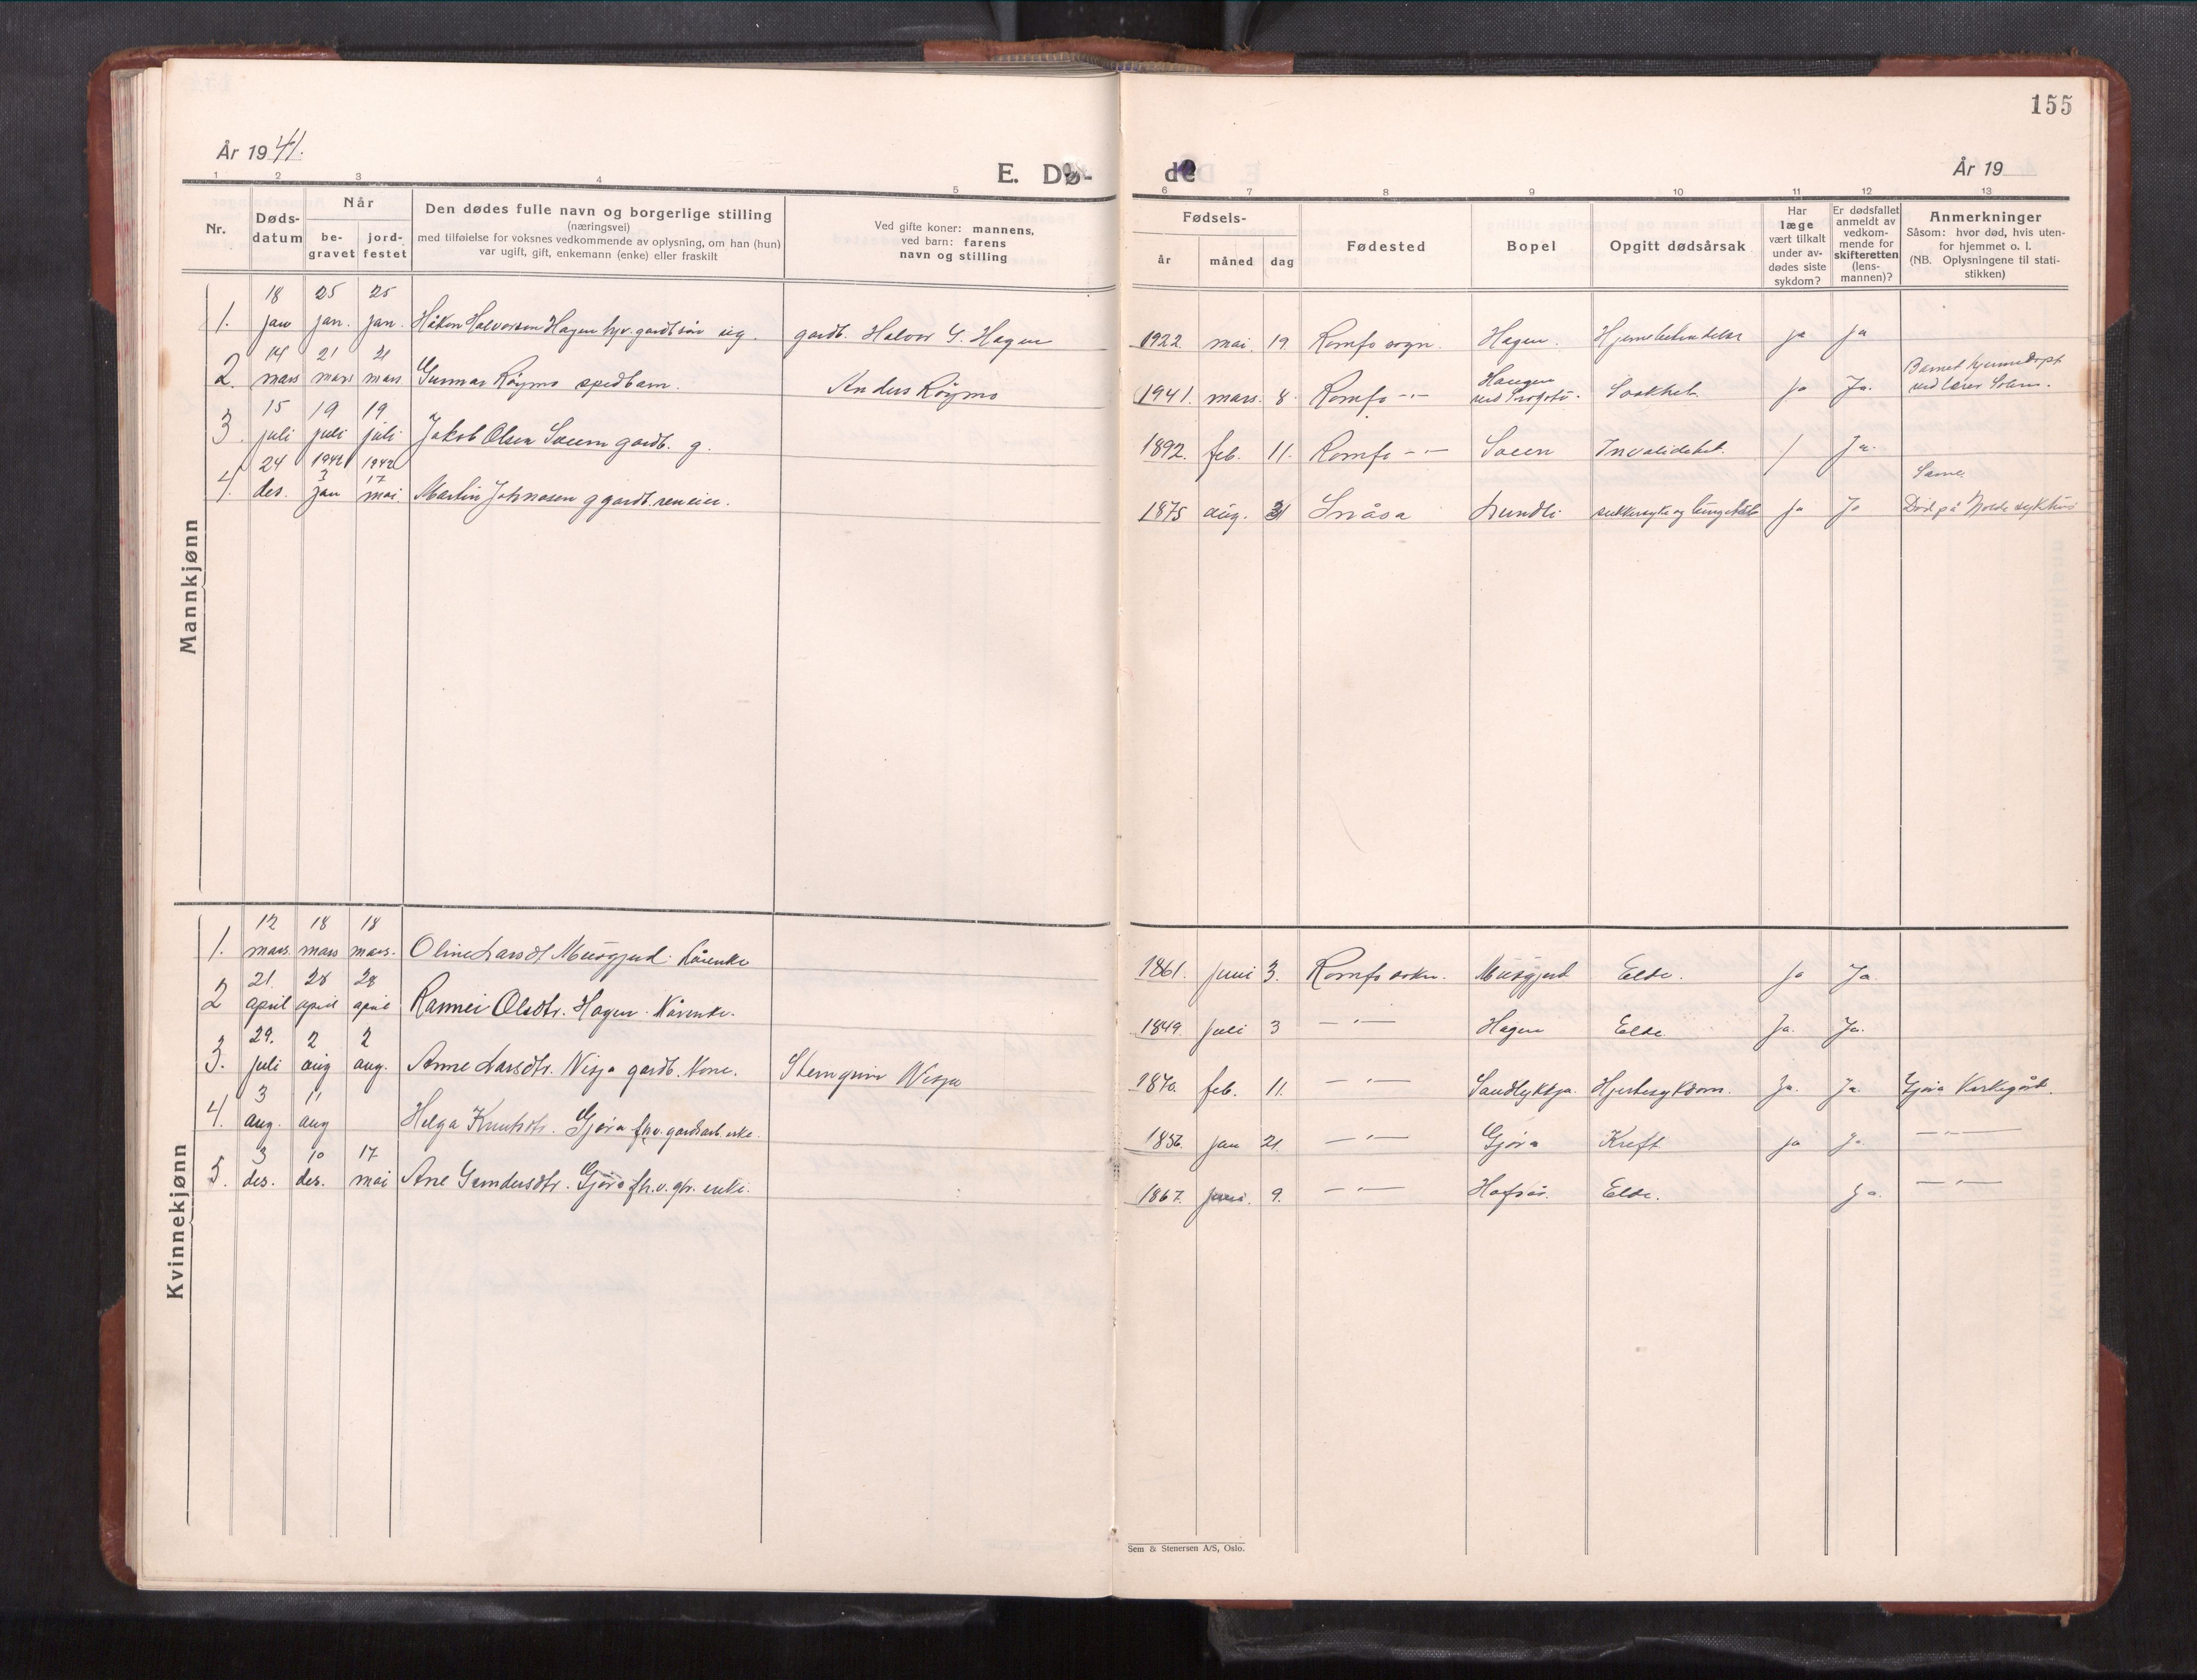 155
År 1941.
E. Dø-
de
År 19
1 2 3 4 5 6 7 8 9 10 11 12 13
Nr.
Døds-
datum
Når
be-
gravet
jord-
festet
Den dødes fulle navn og borgerlige stilling
(næringsvei)
med tilføielse for voksnes vedkommende av oplysning, om han (hun)
var ugift, gift, enkemann (enke) eller fraskilt
Ved gifte koner: mannens,
ved barn: farens
navn og stilling
Fødsels-
år
måned
dag
Fødested
Bopel
Opgitt dødsårsak
Har
læge
vært tilkalt
under av-
dødes siste
sykdom?
Er dødsfallet
anmeldt av
vedkom-
mende for
skifteretten
(lens-
mannen)?
Anmerkninger
Såsom: hvor død, hvis uten-
for hjemmet o. l.
(NB. Oplysningene til stati-
stikken)
Mannkjønn
18 25 25
1. jan jan. jan. Håkon Halvorsen Hagen hjv. gardbrs. ug. gardb. Halvor G. Hagen 1922. mai. 19 Romfo sogn. Hagen. Hjernebetendelse ja ja
14 21 21
2. mars mars mars Gunnar Röymo spedbarn. Anders Röymo 1941. mars. 8. Romfo -"- Haugen Svakhet ja Ja. Barnet hjemmedöpt
ved lærer
15 19 19
3. juli juli juli Jakob Olsen gardb. g. 1892. feb. 11. Romfo -"- Invaliditet. / Ja.
24 1942 1942
3 17
4. des. jan mai. Martin Johnasen g gardb. reneier. 1875 aug. 31 Snåsa Lundli sukkersyke og ja Ja Same.
Död på Molde sykehus
Kvinnekjønn
12 18 18
1. mars mars mars. Oline Larsdt Musgjerd. Kårenke 1861. juni 3. Romfo sokn. Musgjerd Elde. Ja Ja.
21. 28 28
2 april april april Rannei Olsdtr. Hagen. Kårenke. 1849. juli 3 -"- Hagen Elde. Ja. Ja.
29. 2 2
3. juli aug aug. Anne Larsdtr. Nisja gardb. kone. Steingrim Nisja 1870. feb. 11. -"- Sandlykkja. Hjertesykdom. Ja. Ja. Gjöra Kirkegård.
3 11
4. aug. aug Helga Knutsdtr. Gjöra fhv. gardarb. enke. 1856. jan 21. -"- Gjöra Kreft ja Ja. -"-
3 10 17
5. des. des. mai Ane Gundersdtr. Gjöra fh.v. gbr. enke. 1867. juni. 9. -"- Hafsås. Elde. Ja. -"-
Sem & Stenersen A/S, Oslo.